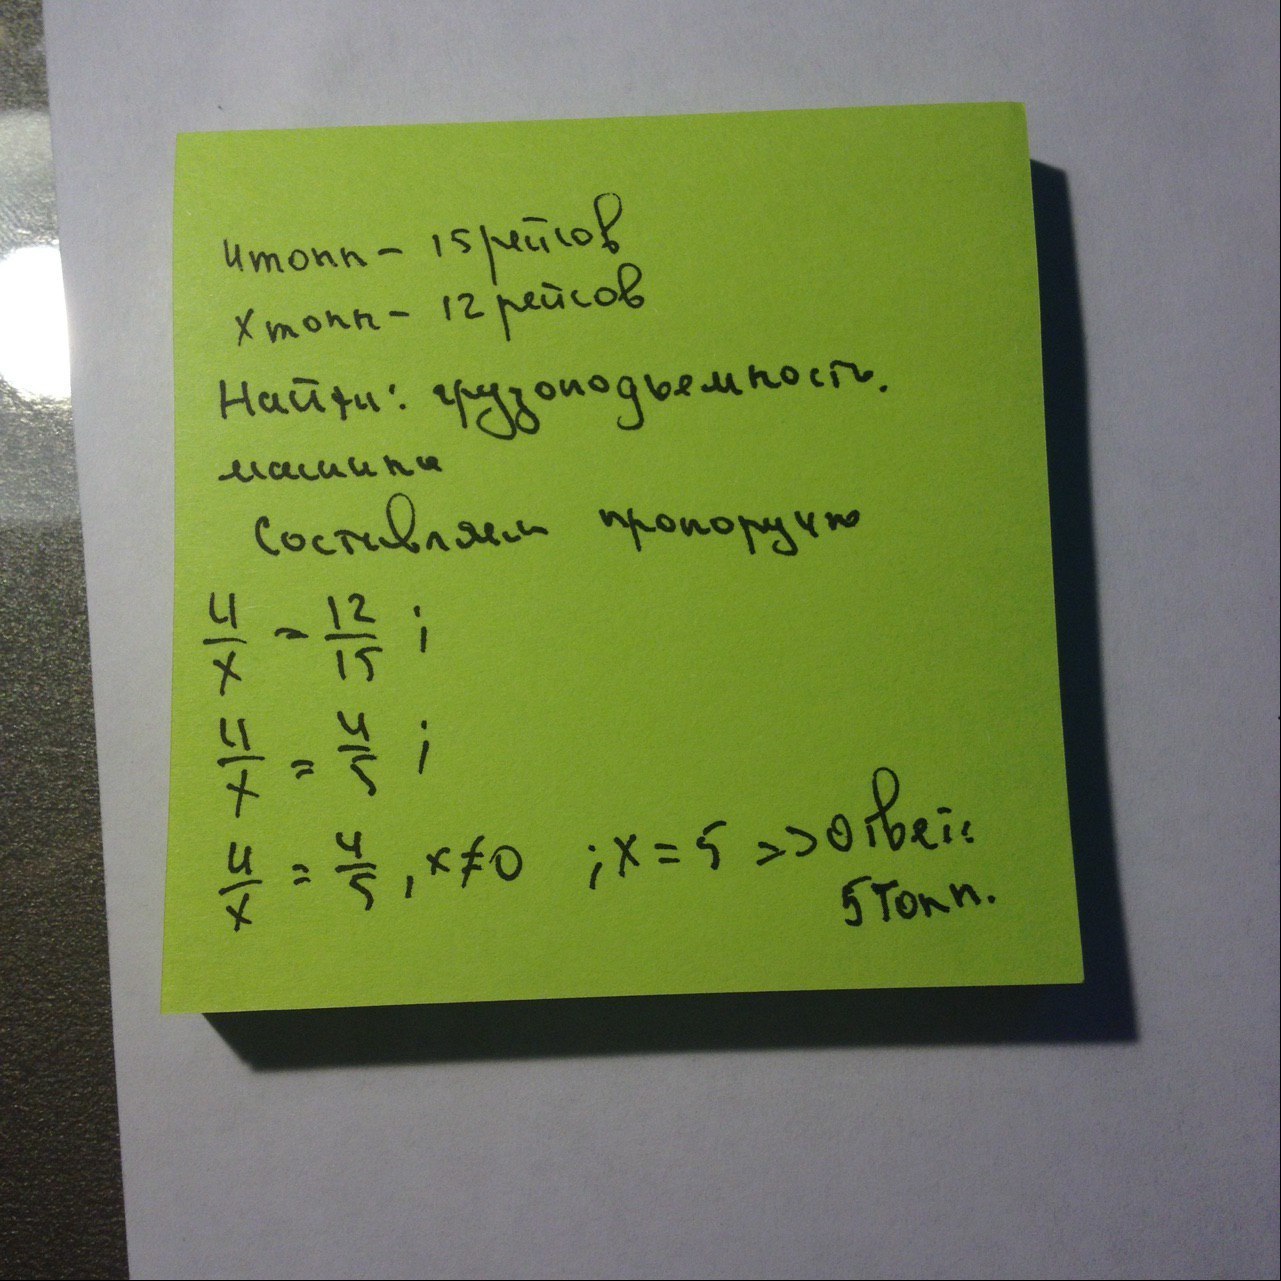 4тонн - 15 рейсов
x тонн - 12 рейсов
Найти: грузоподьемность.
машины
Составляем пропорцию
4/x = 12/15 ;
4/x = 4/5 ;
4/x = 4/5 , x≠0 ; x = 5 >> Ответ:
5 тонн.